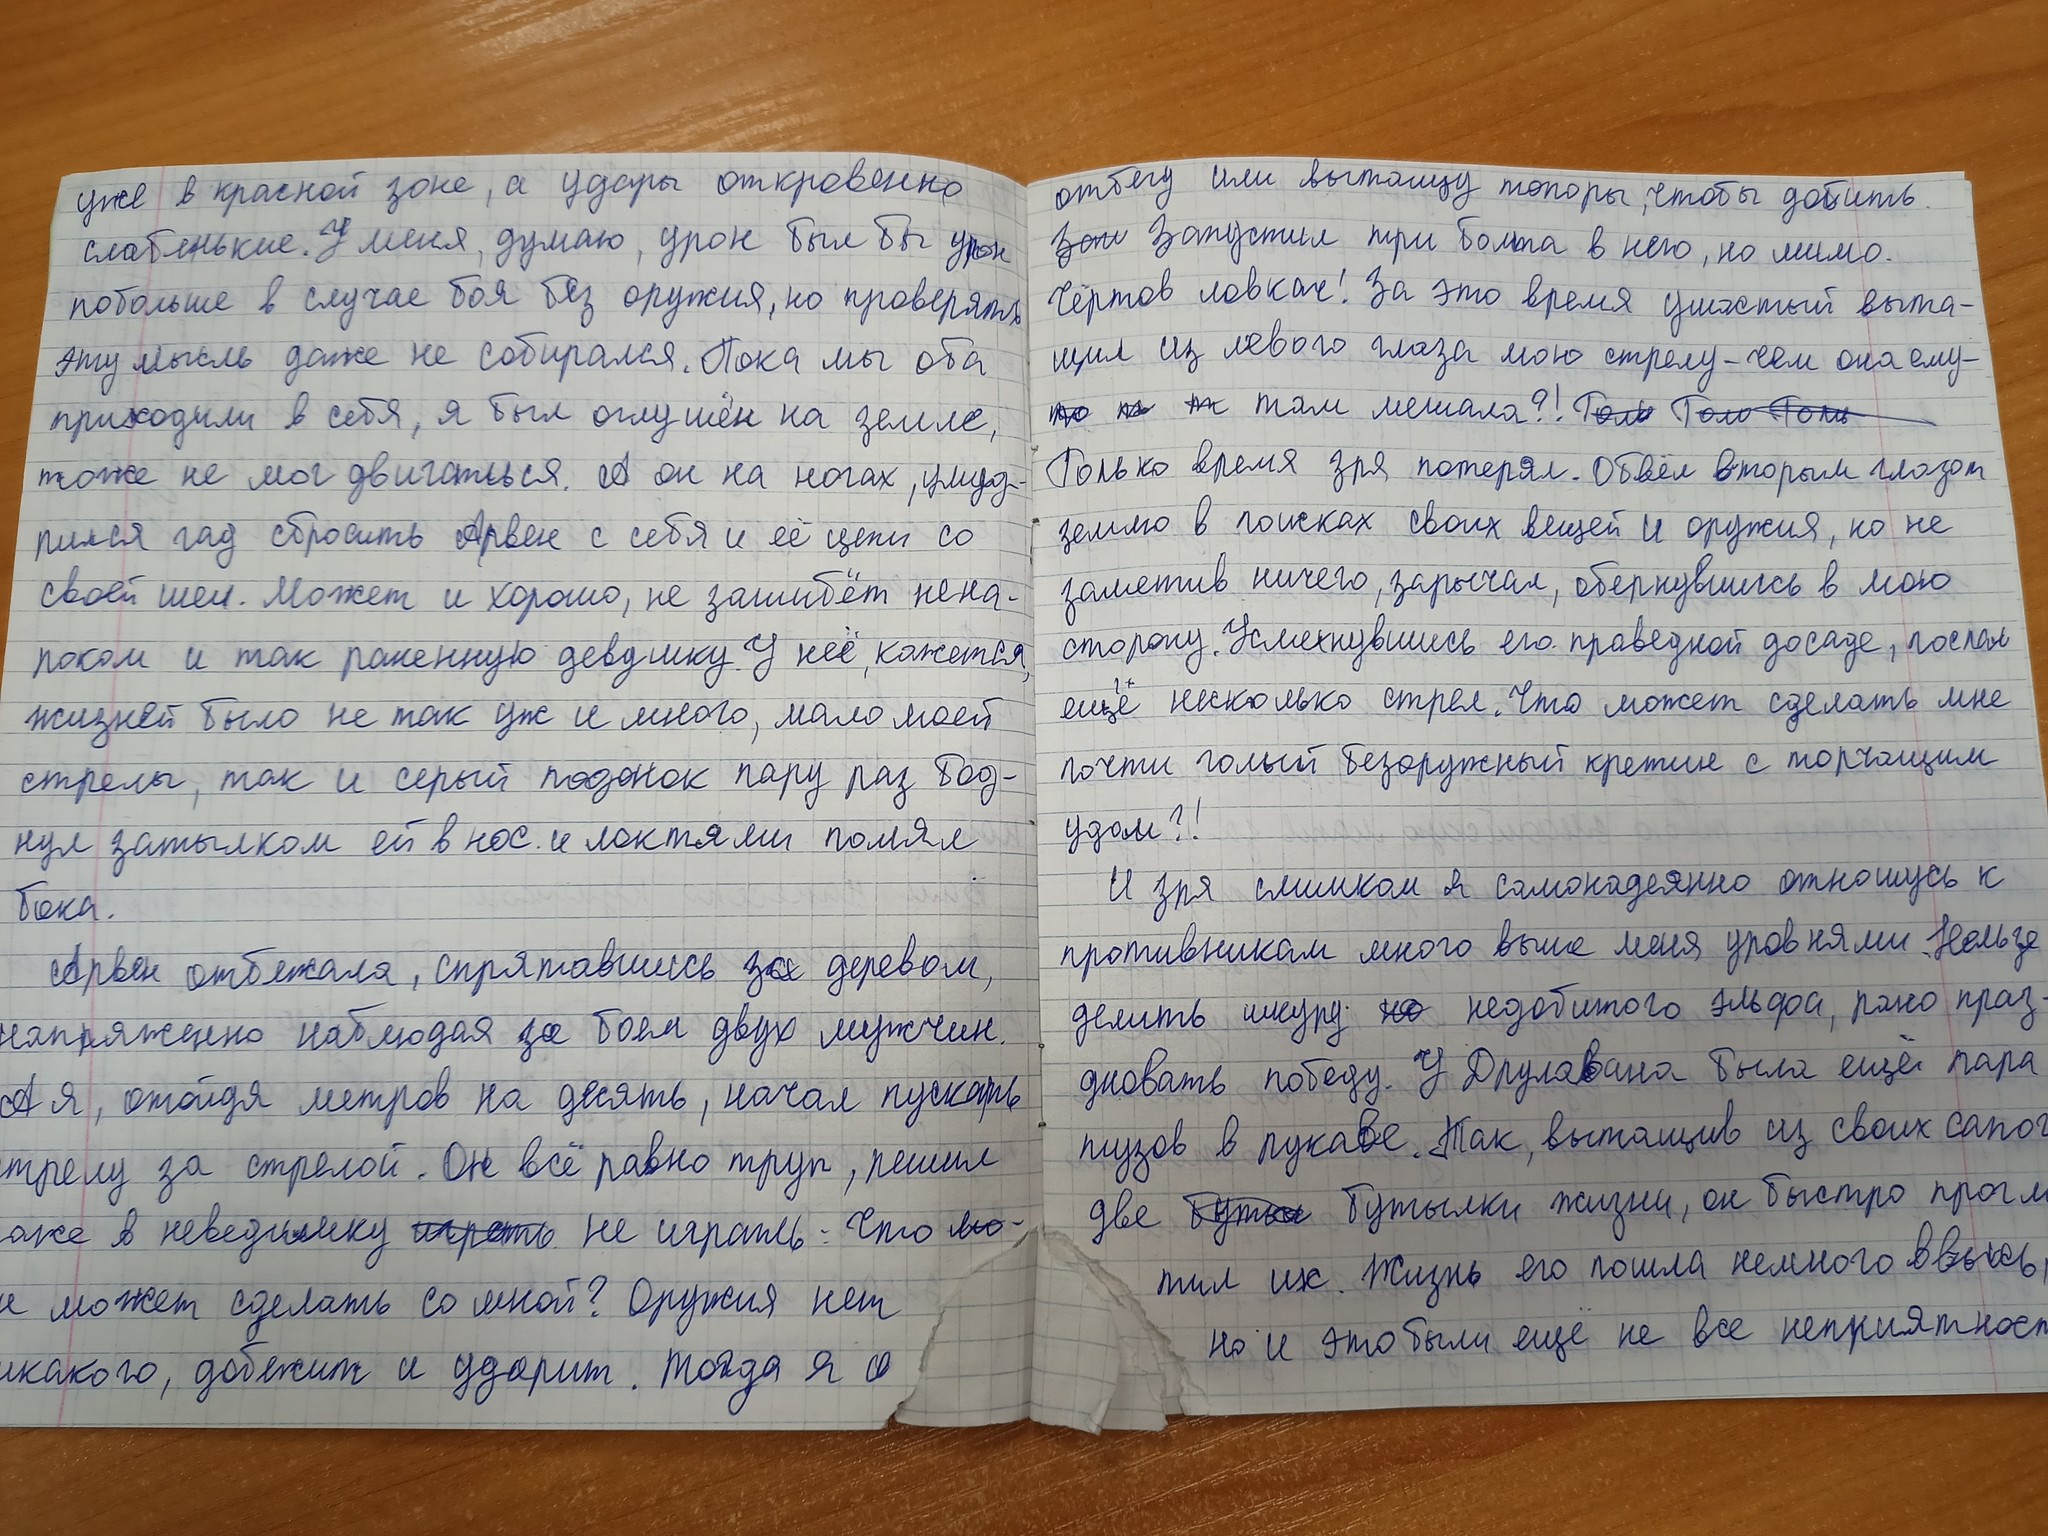 уже в красной зоне, а удары откровенно
слабенькие. У меня, думаю, урон был бы урон
побольше в случае боя без оружия, но проверять
эту мысль даже не собирался. Пока мы оба
приходили в себя, я был оглушён на земле,
тоже не мог двигаться. А он на ногах, умуд-
рился гад сбросить Арвен с себя и её цепи со
своей шеи. Может и хорошо, не зашибёт нена-
роком и так раненную девушку. У неё, кажется,
жизней было не так уж и много, мало моей
стрелы, так и серый подонок пару раз бод-
нул затылком ей в нос и локтями помял
бока.
Арвен отбежала, спрятавшись за деревом,
напряженно наблюдая за боем двух мужчин.
А я, отойдя метров на десять, начал пускать
стрелу за стрелой. Он всё равно труп, решил
даже в неведимку играть не играть. Что мо-
и может сделать со мной? Оружия нет
икакого, добежит и ударит. Тогда я о
отбегу или вытащу топоры, чтобы добить.
Зап Запустил три болта в него, но мимо.
Чёртов ловкач! За это время ушастый выта-
щил из левого глаза мою стрелу - чем она ему-
там мешала?! Толь Толь Толь
Только время зря потерял. Обвёл вторым глазом
землю в поисках своих вещей и оружия, но не
заметив ничего, зарычал, обернувшись в мою
сторону. Усмехнувшись его праведной досаде, послал
ещё несколько стрел. Что может сделать мне
почти голый безоружный кретин с торчащим
удом?!
И зря слишком я самонадеянно отношусь к
противникам много выше меня уровнями. Нельзя
делить шкуру но недобитого эльфа, рано праз-
дновать победу. У Друлавана была ещё пара
тузов в рукаве. Так, вытащив из своих сапог
две буты бутылки жизни, он быстро прогло
тил их. Жизнь его пошла немного ввысь,
но и это были ещё не все неприятност